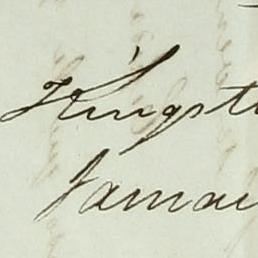 Kingst
Jamai